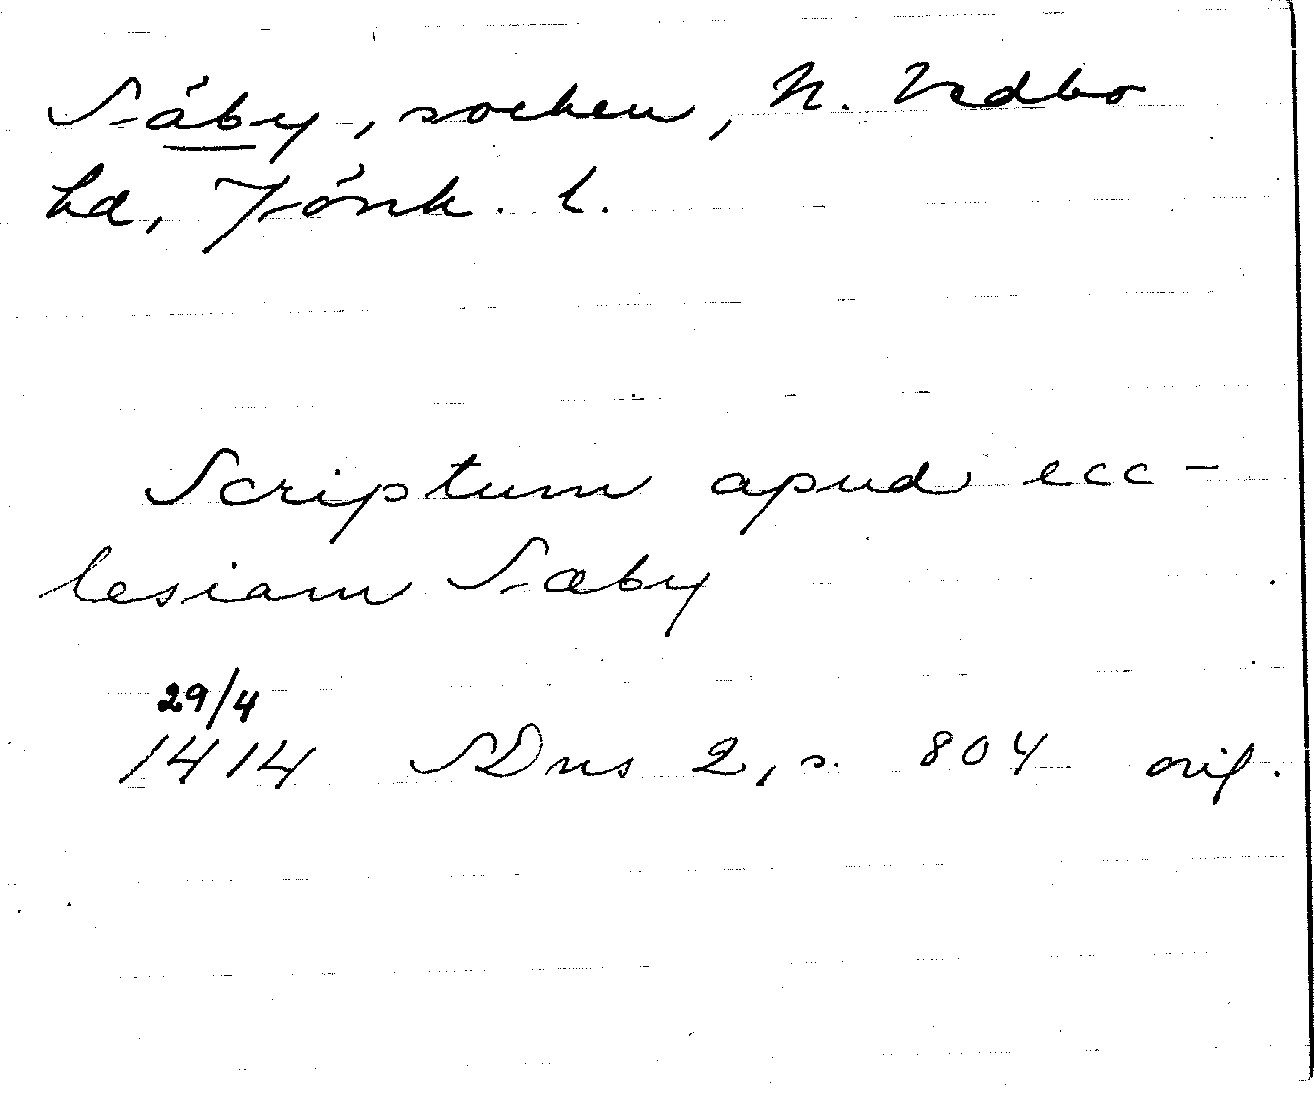 Säby, socken, N. Vedbo
hd, Jönk. l.
Scriptum apud ecc-
lesiam Sæby
29/4
1414 SDns 2, s. 804 orig.